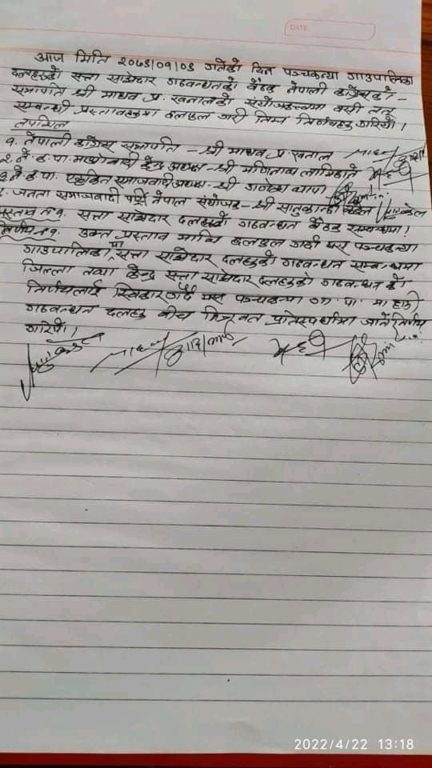 DATE
आज मिति २०७९/०१/०९ गतेका दिन पञ्चकन्या गाउपालिका
दलहरुको सत्ता साझेदार गठवन्धनको बैठक नेपाली काँग्रेसका
सभापति श्री माधव प्र. खनालको संयोजकत्वमा वसी
सम्वन्धी प्रस्तावउपर छलफल गरी निम्न निर्णयहरु गरियो।
उपस्थित
१. नेपाली काँग्रेस सभापति - श्री माधव प्र खनाल
२. ने. क. पा. माओवादी केन्द्र अध्यक्ष - श्री मणिनाथ लामिछाने
३. ने. क. पा. एकिकृत समाजवादी अध्यक्ष - श्री थापा
४. जनता समाजवादी पार्टी नेपाल संयोजक - श्री
प्रस्ताव नं १. सत्ता साझेदार दलहरुको गठवन्धन बैठक सम्वन्धमा।
निर्णय नं १. उक्त प्रस्ताव माथि छलफल गर्दा यस पञ्चकन्या
गाउपालिकामा सत्ता साझेदार दलहरुको गठवन्धन सम्वन्धमा
जिल्ला तथा केन्द्र सत्ता साझेदार दलहरुको गठवन्धन को
निर्णयलाई स्विकार गर्दै यस पञ्चकन्या गा. पा. मा हामी
गठवन्धन दलहरु बीच मित्रवत प्रतिस्पर्धामा जाने निर्णय
गरियो।
2022/4/22 13:18